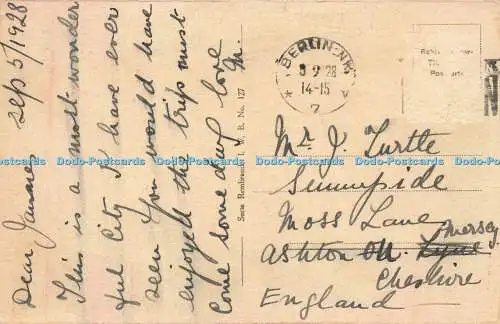 Sep 5/1928
Dear
This is a most wonder
ful City I have ever
seen You would have
enjoyed the trip must
Come some day love
M.
Serie Rembrandt W. R. No. 127
BERLIN-NW
5 9 28
14-15
* 7 v
Mr J. Turtle
Sunnyside
Moss Lane
Ashton On Mersey
Cheshire
England
Postcards
Dodo-Postcards Dodo-Postcards Dodo-Postcards Dodo-Postcards Dodo-Postcards